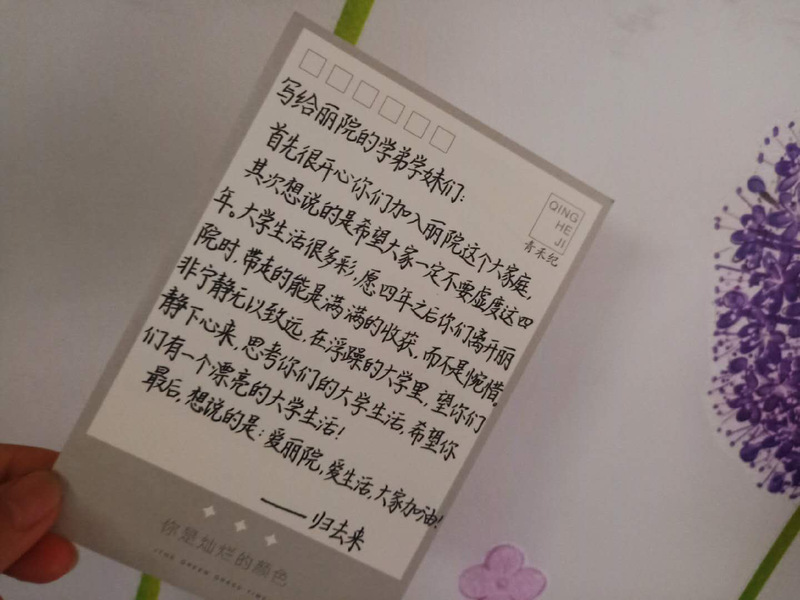 写给丽院的学弟学妹们:
首先很开心你们加入丽院这个大家庭,
其次想说的是希望大家一定不要虚度这四
年。大学生活很多彩,愿四年之后你们离开丽
院时,带走的能是满满的收获,而不是惋惜。
非宁静无以致远,在浮躁的大学里,望你们
静下心来,思考你们的大学生活,希望你
们有一个漂亮的大学生活!
最后,想说的是:爱丽院,爱生活,大家加油!
——归去来
QING
HE
JI
青禾纪
你是灿烂的颜色